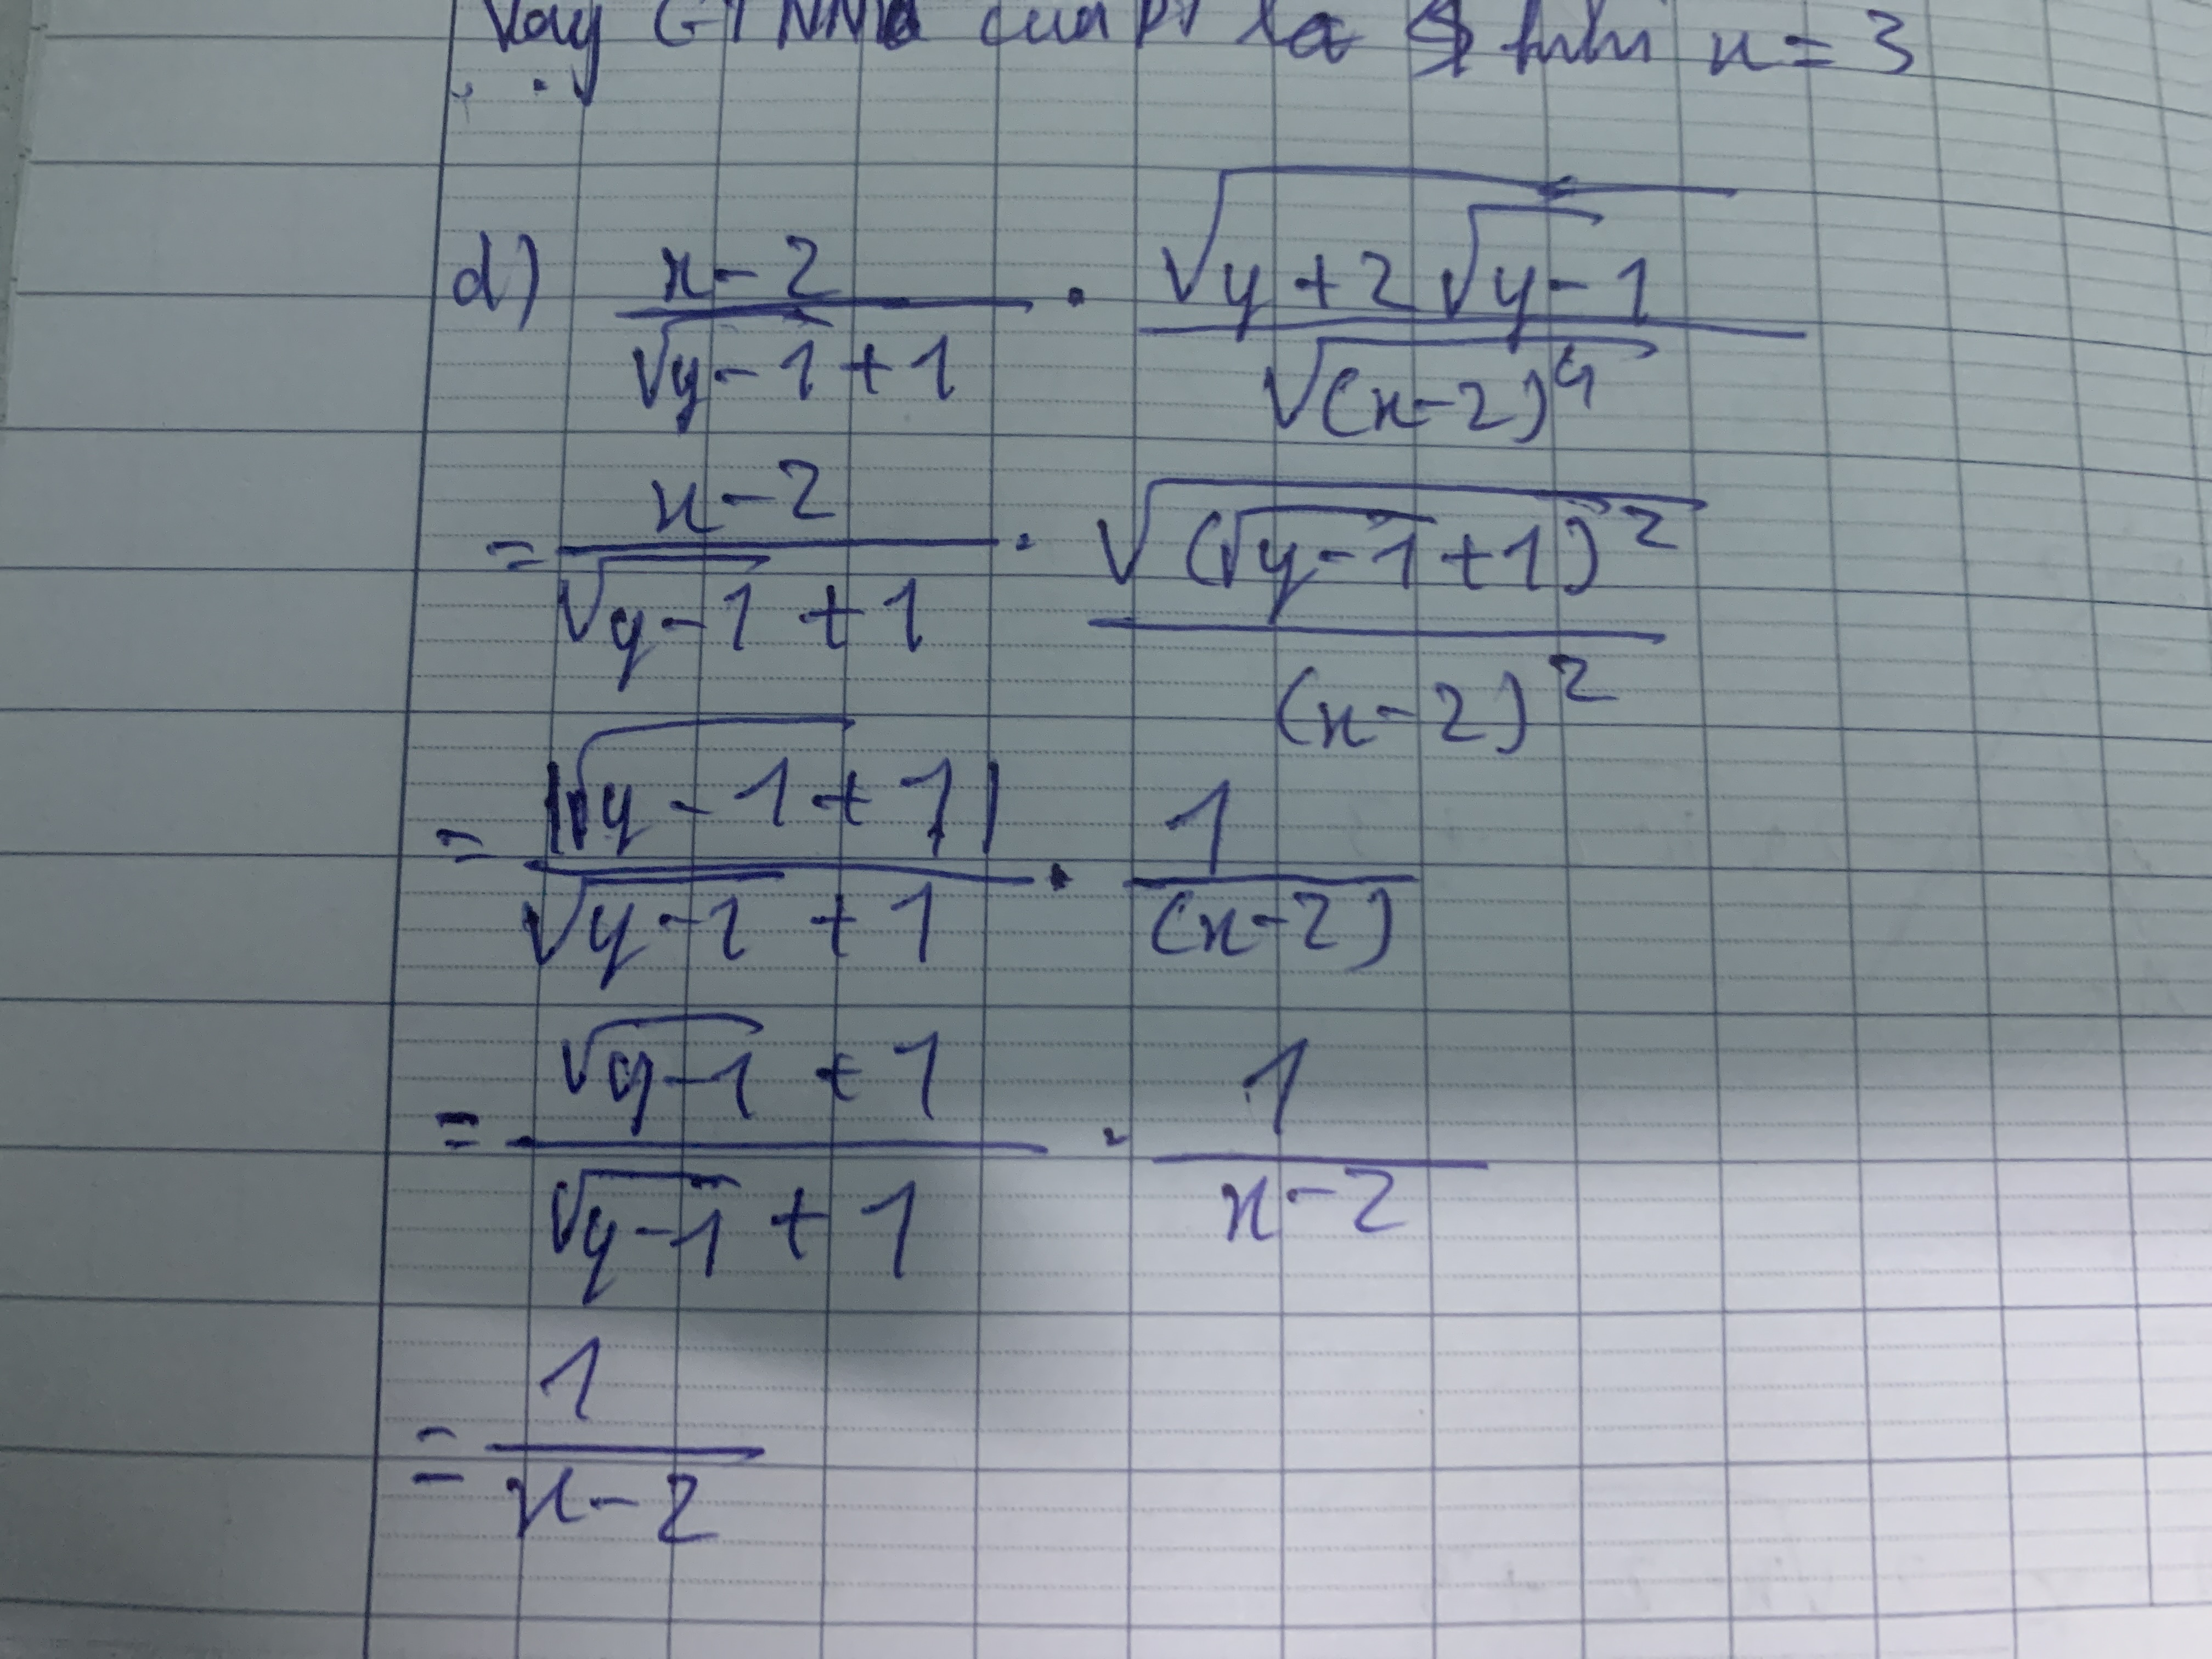 Vậy GTNN của là khi x = 3
d) \frac{x-2}{\sqrt{y-1}+1} \cdot \frac{\sqrt{y+2\sqrt{y-1}}}{\sqrt{(x-2)^4}}
= \frac{x-2}{\sqrt{y-1}+1} \cdot \frac{\sqrt{(\sqrt{y-1}+1)^2}}{(x-2)^2}
= \frac{|\sqrt{y-1}+1|}{\sqrt{y-1}+1} \cdot \frac{1}{(x-2)}
= \frac{\sqrt{y-1}+1}{\sqrt{y-1}+1} \cdot \frac{1}{x-2}
= \frac{1}{x-2}